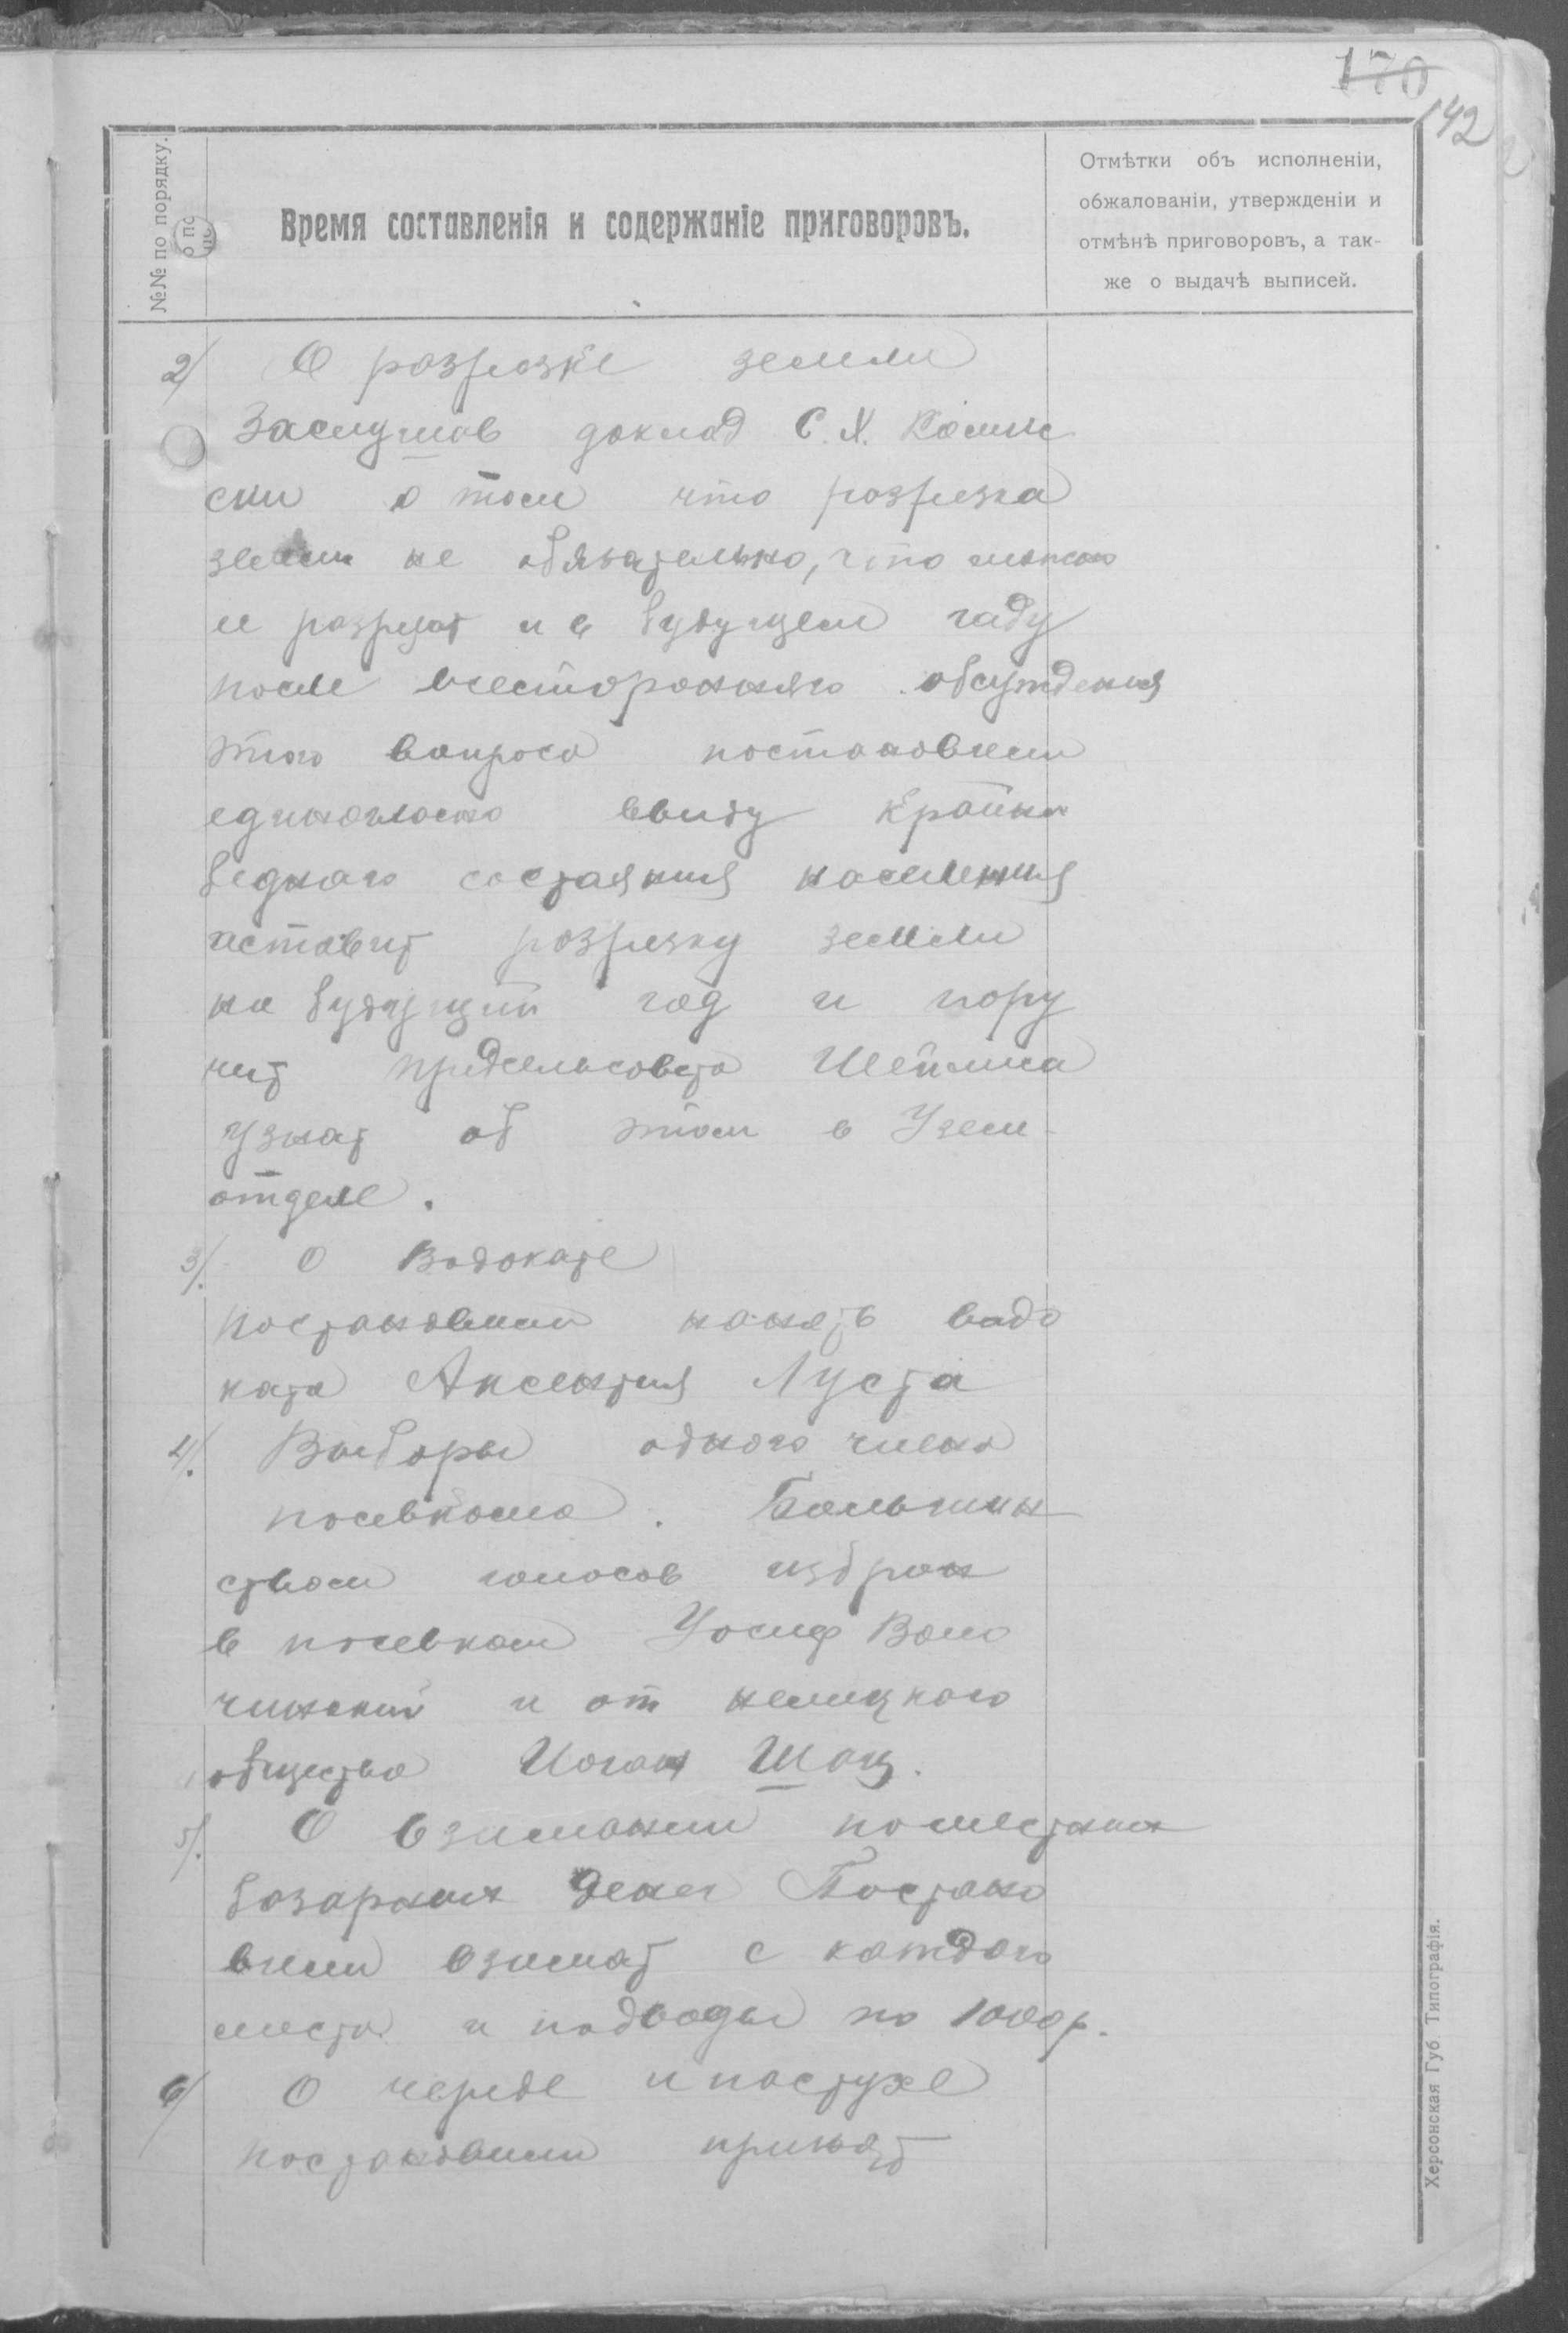 170
142
№№ по порядку.
Время составленія и содержаніе приговоровъ.
Отмѣтки объ исполненіи,
обжалованіи, утвержденіи и
отмѣнѣ приговоровъ, а так-
же о выдачѣ выписей.
2/ О розрезке земли
Заслушав доклад С. Х. Комис
сии о том что розрезка
земли не обязательно, что можно
ее разрезат и в будущем гаду
после всесторонняго обсуждения
этого вопроса постановлен
единогласно ввиду крайня
беднаго состаяния населения
аставит розрезку земли
на будущий год и пору
чит предсельсовета Шейлика
узнат об этом в Узем-
отделе.
3/. О Водокате
Постановили нанять вадо
ката Аксентия Луста
4/. Выборы одного члена
посевкома. Большин
ством голосов избран
в посевком Иосиф Воло
чинский и от немецкого
общества Иоган Шац.
5/. О взимании поместних
базарних денег Постано
вили взимат с каждого
места и подводы по 1000 р.
6/ О череде и пастухе
постановили принят
Херсонская Губ Типографія.